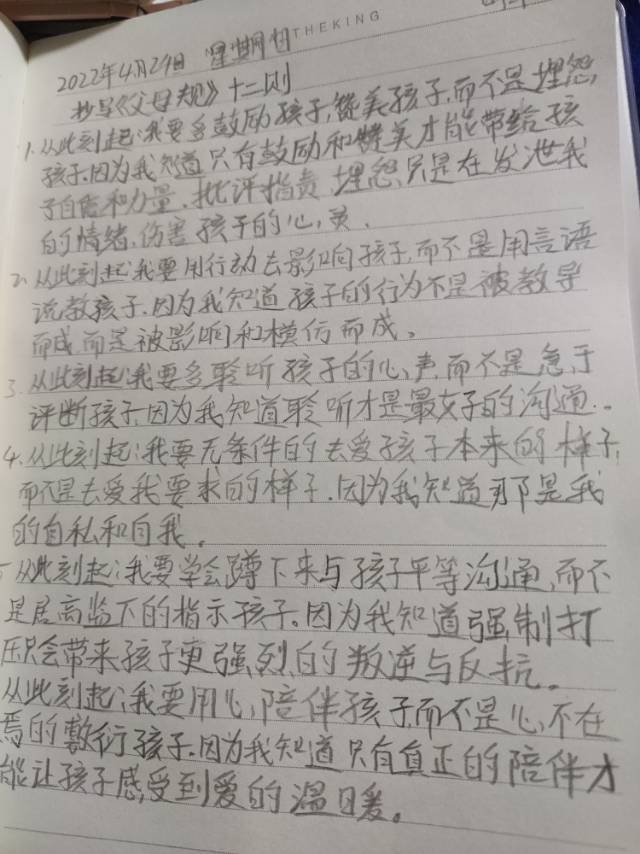 THEKING
2022年4月29日 星期
抄写《父母规》十二则
1.从此刻起:我要多鼓励孩子,赞美孩子,而不是埋怨,
孩子.因为我知道只有鼓励和赞美才能带给孩
子自信和力量.批评指责.埋怨只是在发泄我
的情绪,伤害孩子的心灵.
2.从此刻起:我要用行动去影响孩子.而不是用言语
说教孩子.因为我知道孩子的行为不是被教导
而成而是被影响和模仿而成。
3.从此刻起:我要多聆听孩子的心声而不是急于
评断孩子.因为我知道聆听才是最好的沟通..
4.从此刻起:我要无条件的去爱孩子本来的样子,
而不是去爱我要求的样子.因为我知道那是我
的自私和自我。
5从此刻起:我要学会蹲下来与孩子平等沟通,而不
是居高临下的指示孩子。因为我知道强制打
压只会带来孩子更强烈的叛逆与反抗。
从此刻起:我要用心陪伴孩子而不是心不在
焉的敷衍孩子.因为我知道只有真正的陪伴才
能让孩子感受到爱的温暖。